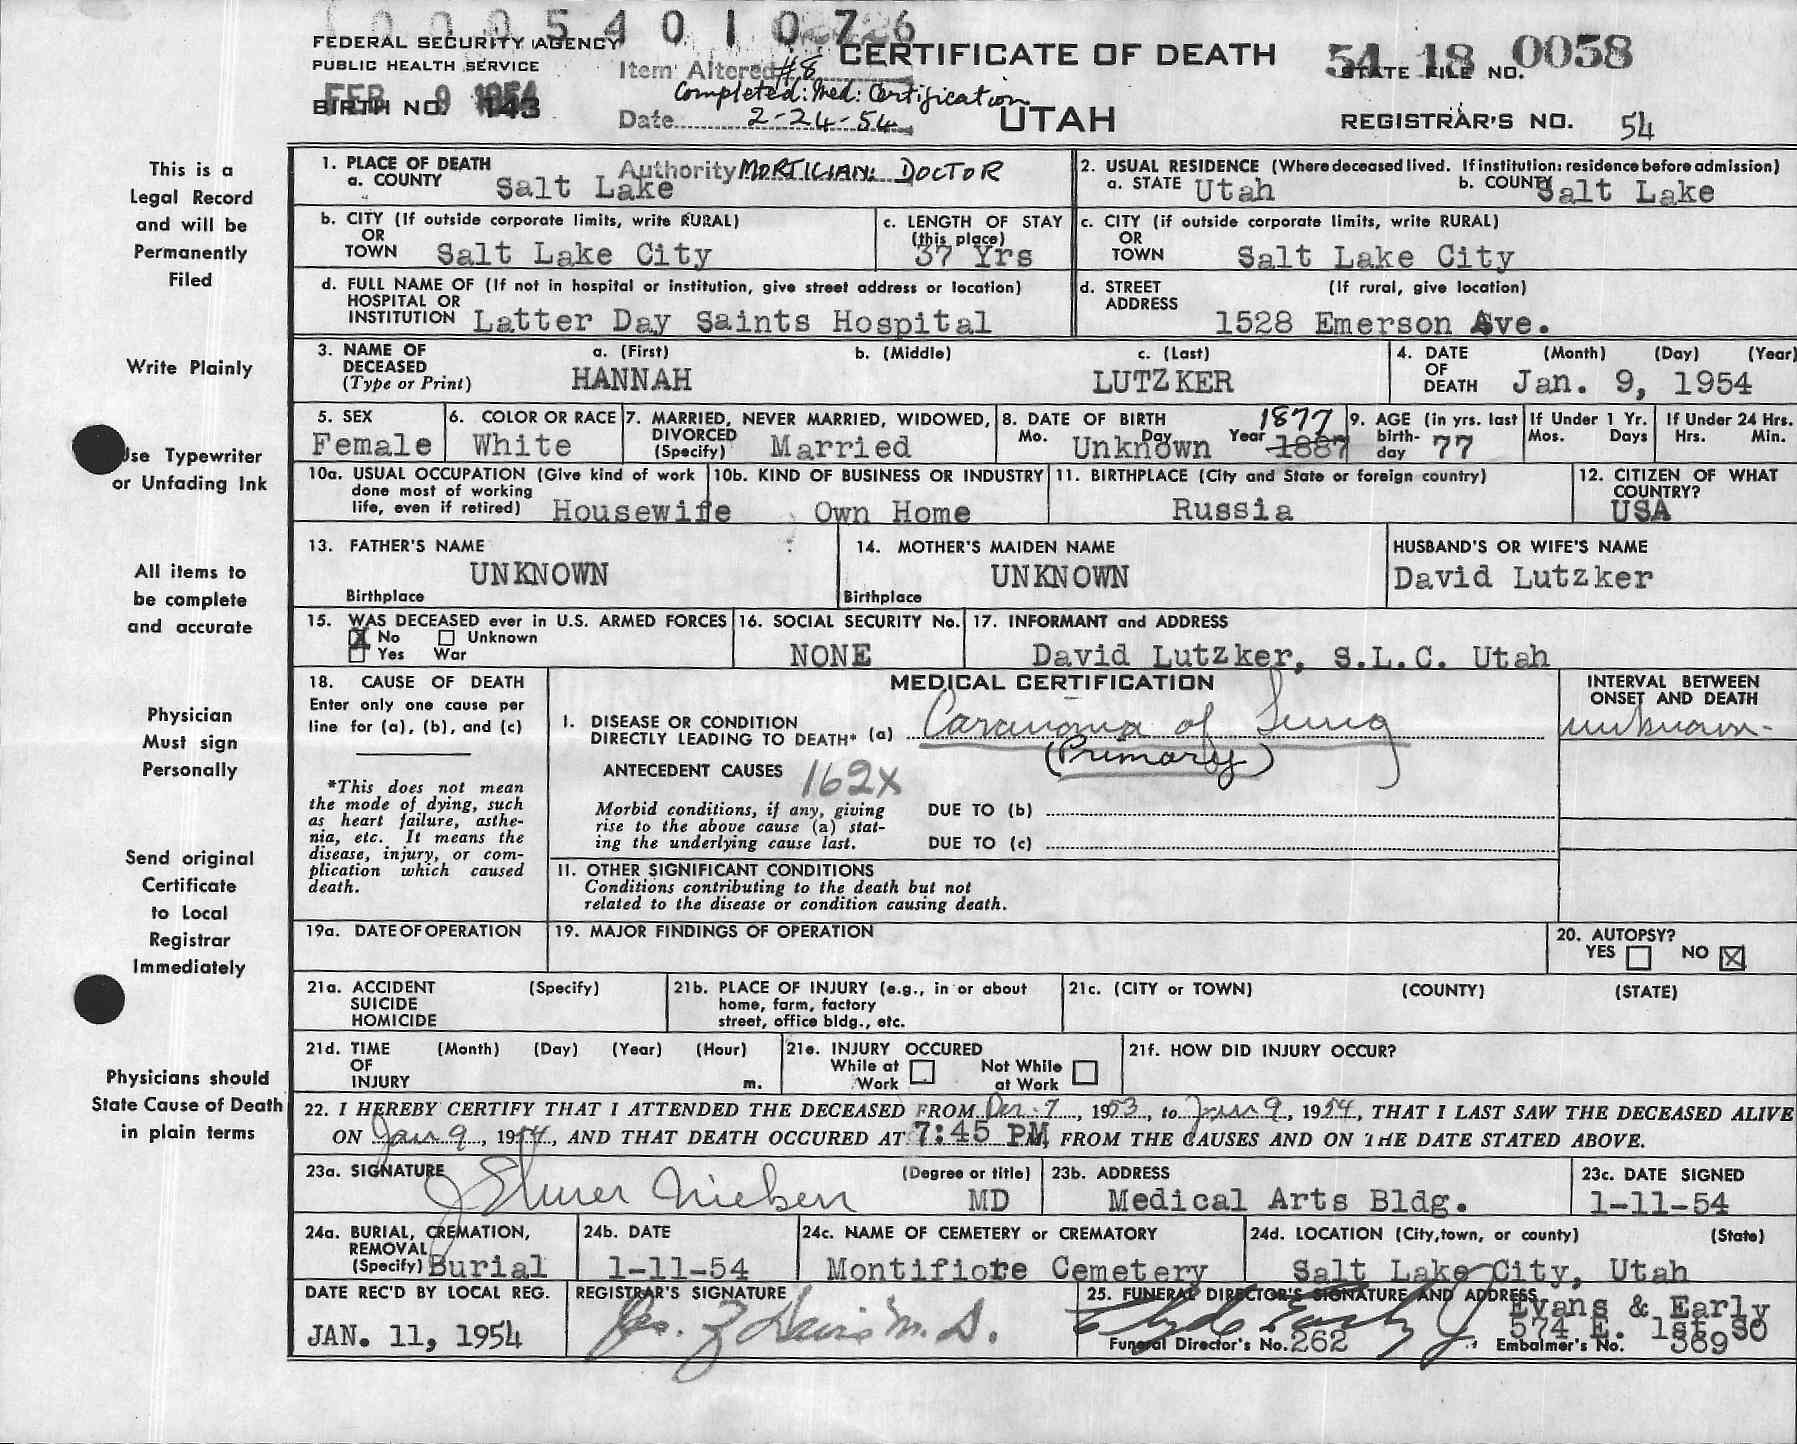 0 0 0 5 4 0 1 0 7 26
FEDERAL SECURITY AGENCY
PUBLIC HEALTH SERVICE
BIRTH NO. 143
FEB 9 1954
Item Altered #8
Completed: Med: Certification
Date 2-24-54
Authority MORTICIAN: DOCTOR
CERTIFICATE OF DEATH
UTAH
54 18 0058
STATE FILE NO.
REGISTRAR'S NO. 54
This is a
Legal Record
and will be
Permanently
Filed
Write Plainly
Use Typewriter
or Unfading Ink
All items to
be complete
and accurate
Physician
Must sign
Personally
Send original
Certificate
to Local
Registrar
Immediately
Physicians should
State Cause of Death
in plain terms
1. PLACE OF DEATH
a. COUNTY Salt Lake
2. USUAL RESIDENCE (Where deceased lived. If institution: residence before admission)
a. STATE Utah b. COUNTY Salt Lake
b. CITY (If outside corporate limits, write RURAL)
OR
TOWN Salt Lake City
c. LENGTH OF STAY
(this place)
37 Yrs
c. CITY (if outside corporate limits, write RURAL)
OR
TOWN Salt Lake City
d. FULL NAME OF (If not in hospital or institution, give street address or location)
HOSPITAL OR
INSTITUTION Latter Day Saints Hospital
d. STREET (If rural, give location)
ADDRESS
1528 Emerson Ave.
3. NAME OF a. (First) b. (Middle) c. (Last)
DECEASED
(Type or Print) HANNAH LUTZKER
4. DATE (Month) (Day) (Year)
OF
DEATH Jan. 9, 1954
5. SEX
Female
6. COLOR OR RACE
White
7. MARRIED, NEVER MARRIED, WIDOWED,
DIVORCED
(Specify) Married
8. DATE OF BIRTH 1877
Mo. Day Year
Unknown 1887
9. AGE (in yrs. last
birth-
day 77
If Under 1 Yr.
Mos. Days
If Under 24 Hrs.
Hrs. Min.
10a. USUAL OCCUPATION (Give kind of work
done most of working
life, even if retired) Housewife
10b. KIND OF BUSINESS OR INDUSTRY
Own Home
11. BIRTHPLACE (City and State or foreign country)
Russia
12. CITIZEN OF WHAT
COUNTRY?
USA
13. FATHER'S NAME
UNKNOWN
Birthplace
14. MOTHER'S MAIDEN NAME
UNKNOWN
Birthplace
HUSBAND'S OR WIFE'S NAME
David Lutzker
15. WAS DECEASED ever in U.S. ARMED FORCES
X No Unknown
Yes War
16. SOCIAL SECURITY No.
NONE
17. INFORMANT and ADDRESS
David Lutzker, S.L.C. Utah
18. CAUSE OF DEATH
Enter only one cause per
line for (a), (b), and (c)
*This does not mean
the mode of dying, such
as heart failure, asthe-
nia, etc. It means the
disease, injury, or com-
plication which caused
death.
MEDICAL CERTIFICATION
INTERVAL BETWEEN
ONSET AND DEATH
I. DISEASE OR CONDITION
DIRECTLY LEADING TO DEATH* (a) Carcinoma of Lung
unknown
(Primary)
ANTECEDENT CAUSES 162X
Morbid conditions, if any, giving
rise to the above cause (a) stat-
ing the underlying cause last.
DUE TO (b)
DUE TO (c)
11. OTHER SIGNIFICANT CONDITIONS
Conditions contributing to the death but not
related to the disease or condition causing death.
19a. DATE OF OPERATION
19. MAJOR FINDINGS OF OPERATION
20. AUTOPSY?
YES NO X
21a. ACCIDENT (Specify)
SUICIDE
HOMICIDE
21b. PLACE OF INJURY (e.g., in or about
home, farm, factory
street, office bldg., etc.
21c. (CITY or TOWN) (COUNTY) (STATE)
21d. TIME (Month) (Day) (Year) (Hour)
OF
INJURY m.
21e. INJURY OCCURED
While at Not While
Work at Work
21f. HOW DID INJURY OCCUR?
22. I HEREBY CERTIFY THAT I ATTENDED THE DECEASED FROM Dec. 7, 1953, to Jan 9, 1954, THAT I LAST SAW THE DECEASED ALIVE
ON Jan 9, 1954, AND THAT DEATH OCCURED AT 7:45 PM, FROM THE CAUSES AND ON THE DATE STATED ABOVE.
23a. SIGNATURE (Degree or title)
J Elmer Nielsen MD
23b. ADDRESS
Medical Arts Bldg.
23c. DATE SIGNED
1-11-54
24a. BURIAL, CREMATION,
REMOVAL
(Specify) Burial
24b. DATE
1-11-54
24c. NAME OF CEMETERY or CREMATORY
Montifiore Cemetery
24d. LOCATION (City, town, or county) (State)
Salt Lake City, Utah
DATE REC'D BY LOCAL REG.
JAN. 11, 1954
REGISTRAR'S SIGNATURE
M.D.
25. FUNERAL DIRECTOR'S SIGNATURE AND ADDRESS
Evans & Early
574 E. 1st So
Funeral Director's No. 262
Embalmer's No. 369